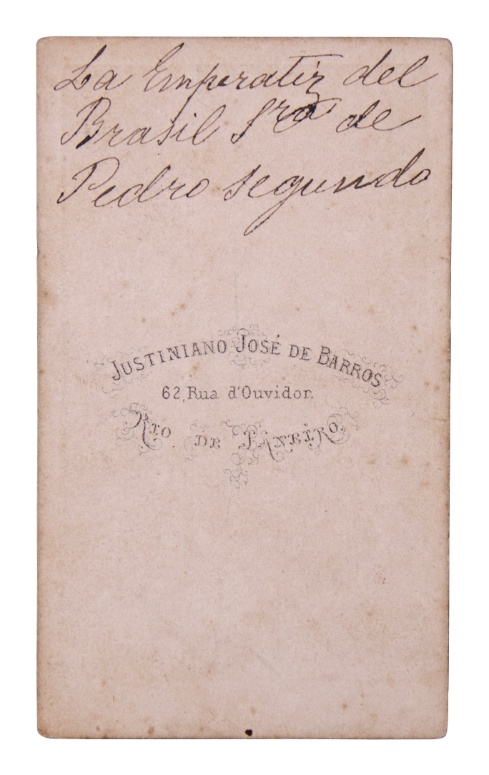 La Emperatiz del
Brasil Sra de
Pedro segundo
JUSTINIANO JOSÉ DE BARROS
62, Rua d'Ouvidor.
RIO DE JANEIRO